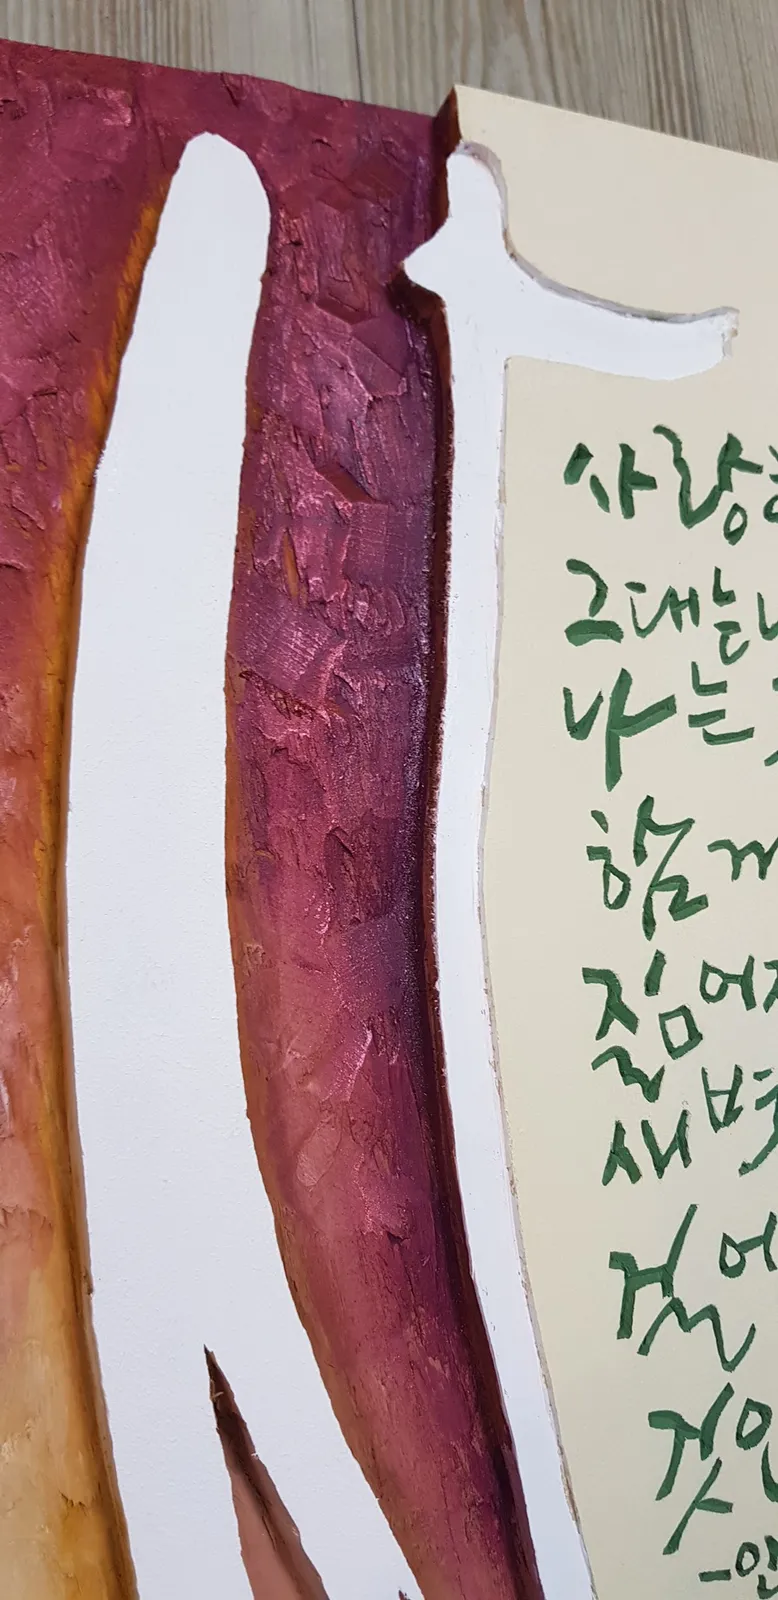 사랑
그대는
나는
함께
짊어
새벽
걸어
것인